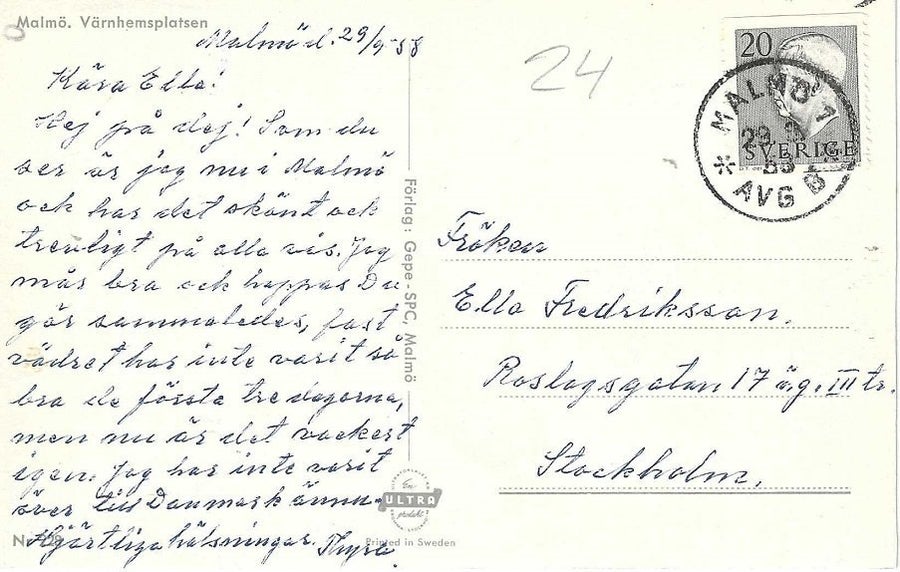 Malmö. Värnhemsplatsen
Malmö d. 29/9-58
Kära Ella!
Hej på dej! Som du
ser är jag nu i Malmö
och har det skönt och
trevligt på alla vis. Jag
mår bra och hoppas Du
gör sammaledes, fast
vädret har inte varit så
bra de första tre dagarna,
men nu är det vackert
igen. Jag har inte varit
över till Danmark ännu.
Hjärtliga hälsningar. Thyra
24
20
SVERIGE
MALMÖ 1
29. 9
AVG B
Fröken
Ella Fredriksson.
Roslagsgatan 17 ö.g. III tr.
Stockholm.
Förlag: Gepe - SPC, Malmö
En
ULTRA
produkt
Printed in Sweden